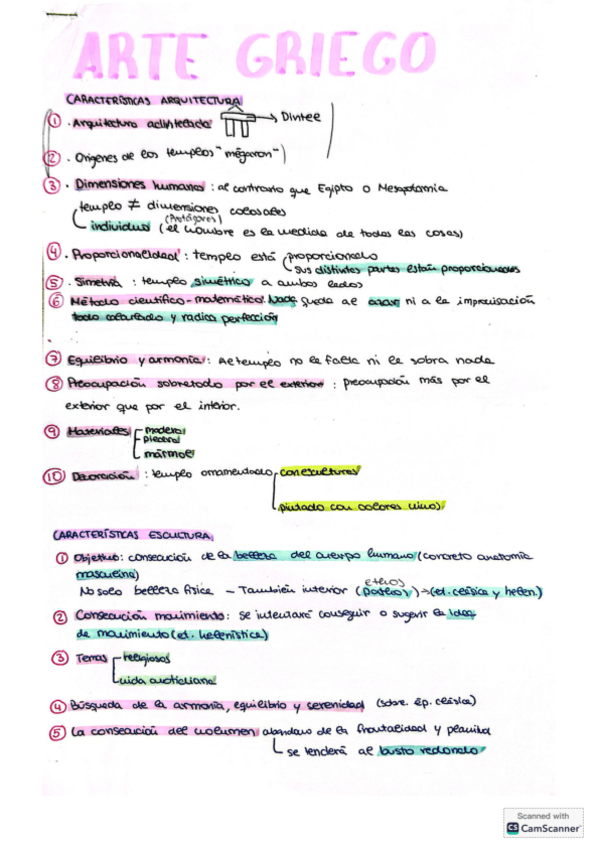 ARTE GRIEGO
CARACTERÍSTICAS ARQUITECTURA
① . Arquitectura adintelada → Dintel
② . Orígenes de los templos "mégaron"
③ . Dimensiones humanas : al contrario que Egipto o Mesopotamia
templo ≠ dimensiones colosales
(Protágoras)
individuo (el hombre es la medida de todas las cosas)
④ . Proporcionalidad : templo está proporcionado
sus distintas partes están proporcionadas
⑤ . Simetría : templo simétrico a ambos lados
⑥ Método científico-matemático. Nada queda al azar ni a la improvisación
todo calculado y radica perfección
⑦ Equilibrio y armonía : Al templo no le falta ni le sobra nada
⑧ Preocupación sobretodo por el exterior : preocupación más por el
exterior que por el interior.
⑨ Materiales madera
piedra
mármol
⑩ Decoración : templo ornamentado con esculturas
pintado con colores vivos.
CARACTERÍSTICAS ESCULTURA
① Objetivo: consecución de la belleza del cuerpo humano (concreto anatomía
masculina)
ethos
No solo belleza física - También interior (pathos) → (et. clásica y helen.)
② Consecución movimiento: se intentará conseguir o sugerir la idea
de movimiento (et. helenística)
③ Temas religiosos
vida cuotidiana
④ Búsqueda de la armonía, equilibrio y serenidad (sobre. ép. clásica)
⑤ La consecución del volumen abandono de la frontalidad y planitud
se tenderá al busto redondo
Scanned with
CS CamScanner